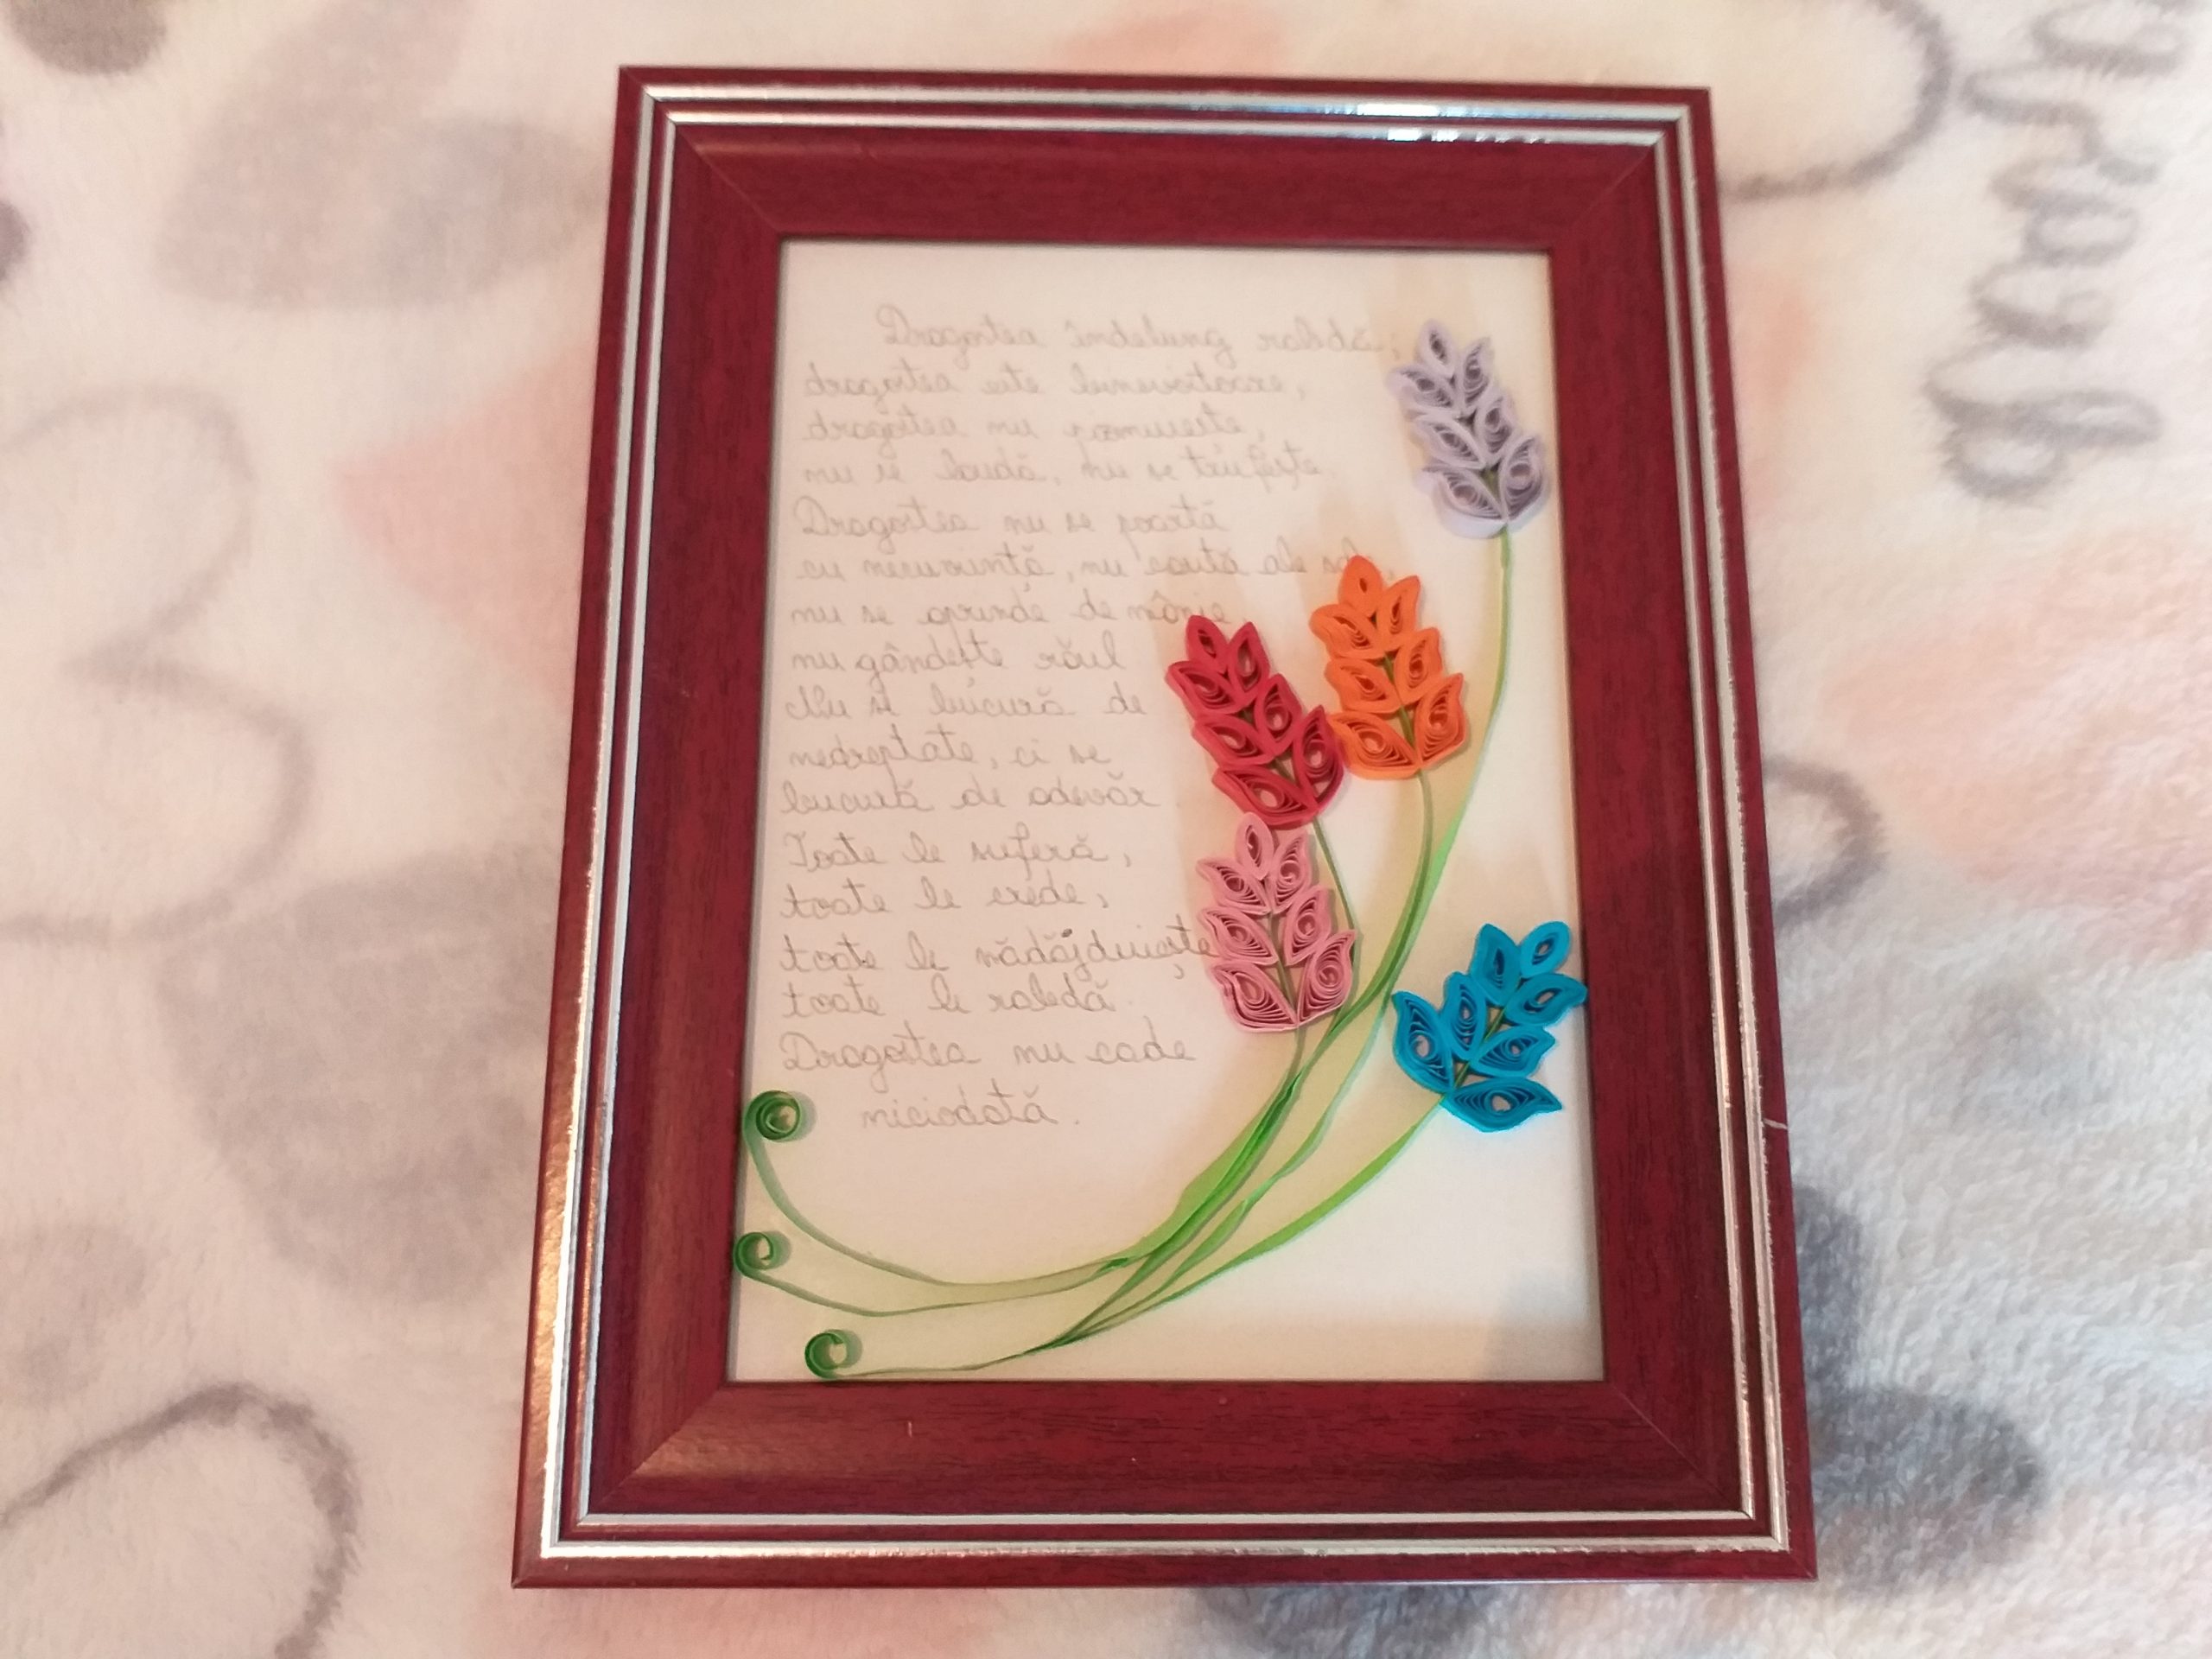 Dragostea îndelung rabdă;
dragostea este binevoitoare,
dragostea nu pizmuiește,
nu se laudă, nu se trufește.
Dragostea nu se poartă
cu necuviință, nu caută ale sale,
nu se aprinde de mânie
nu gândește răul
Nu se bucură de
nedreptate, ci se
bucură de adevăr.
Toate le suferă,
toate le crede,
toate le nădăjduiește
toate le rabdă.
Dragostea nu cade
niciodată.